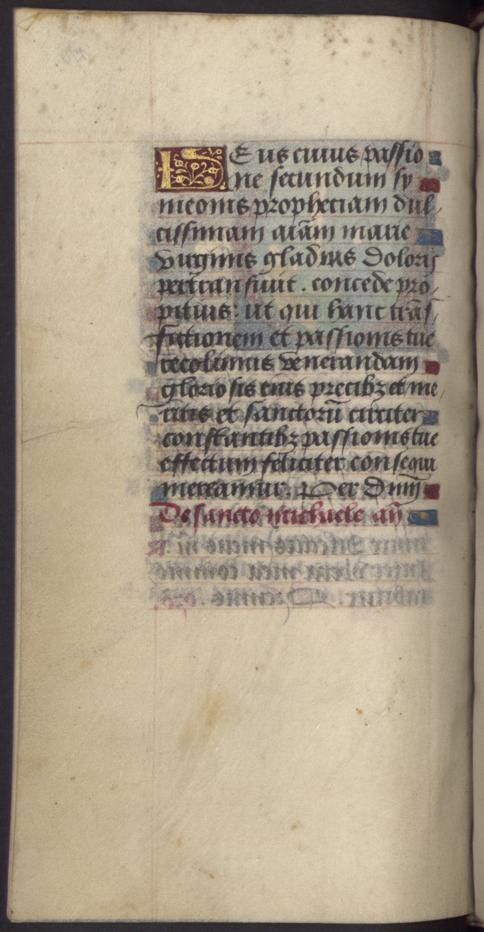 DEus cuius passio
ne secundum sy
meonis prophetiam dul
cissimam aĩam marie
virginis gladius doloris
pertransiuit . concede pro
pitius: ut qui hanc trãs
fixionem et passionis tue
recolimus venerandam
gloriosis eius precibz et me
ritis et sanctorũ
constantibz passionis tue
effectum feliciter consequi
mereamur. Per Dnm̃
De sancto michaele añ